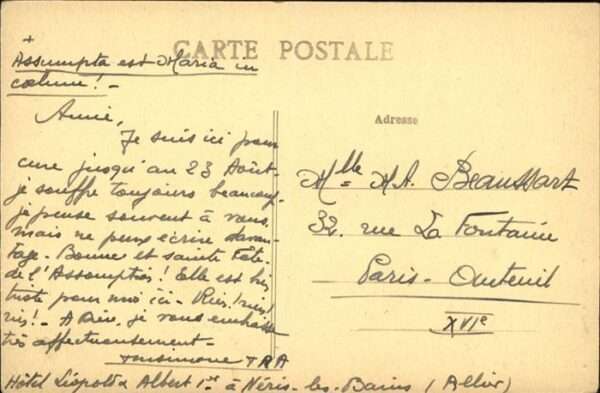 CARTE POSTALE
+
Assumpta est Maria in
cœlum! -
Amie,
Je suis ici pour
cure jusqu'au 23 Août -
je souffre toujours beaucoup
je pense souvent à vous
mais ne peux écrire davan-
tage - Bonne et sainte Fête
de l'Assomption! Elle est bien
triste pour moi ici -
- A Dieu, je vous embrasse
très affectueusement -
Hôtel Léopold & Albert 1er à Néris-les-Bains (Allier)
Adresse
Mlle M.A. Beaussart
32, rue La Fontaine
Paris - Auteuil
XVIe